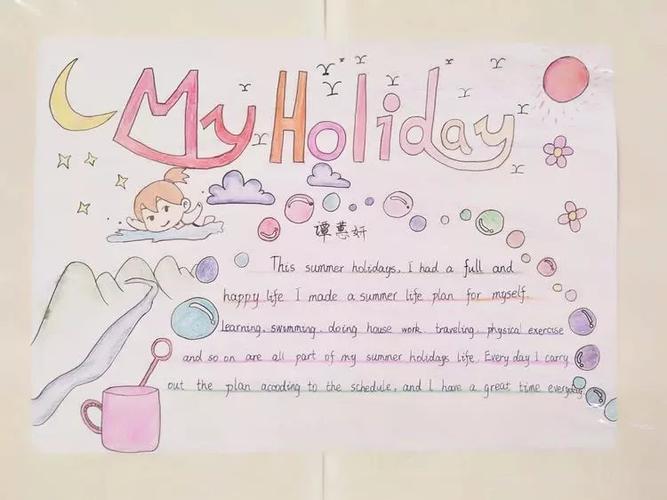 My Holiday
谭惠妍
This summer holidays, I had a full and
happy life I made a summer life plan for myself.
Learning, swimming, doing house work, traveling, physical exercise
and so on are all part of my summer holidays life. Every day I carry
out the plan acooding to the schedule, and I have a great time everyday.